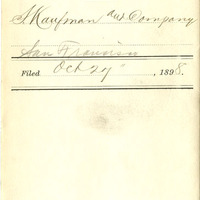 S. Kaufman and Company
San Francisco
Filed Oct 29", 1898.